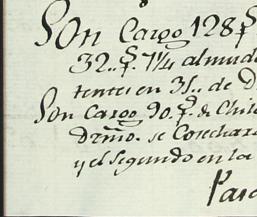 Son Cargo 128 f
32.. f. 1¼ almud
tentes en 31.. de D
Son Cargo 90. f. de Chil
Drmo. se Cosechar
y el Segundo en la
Pas